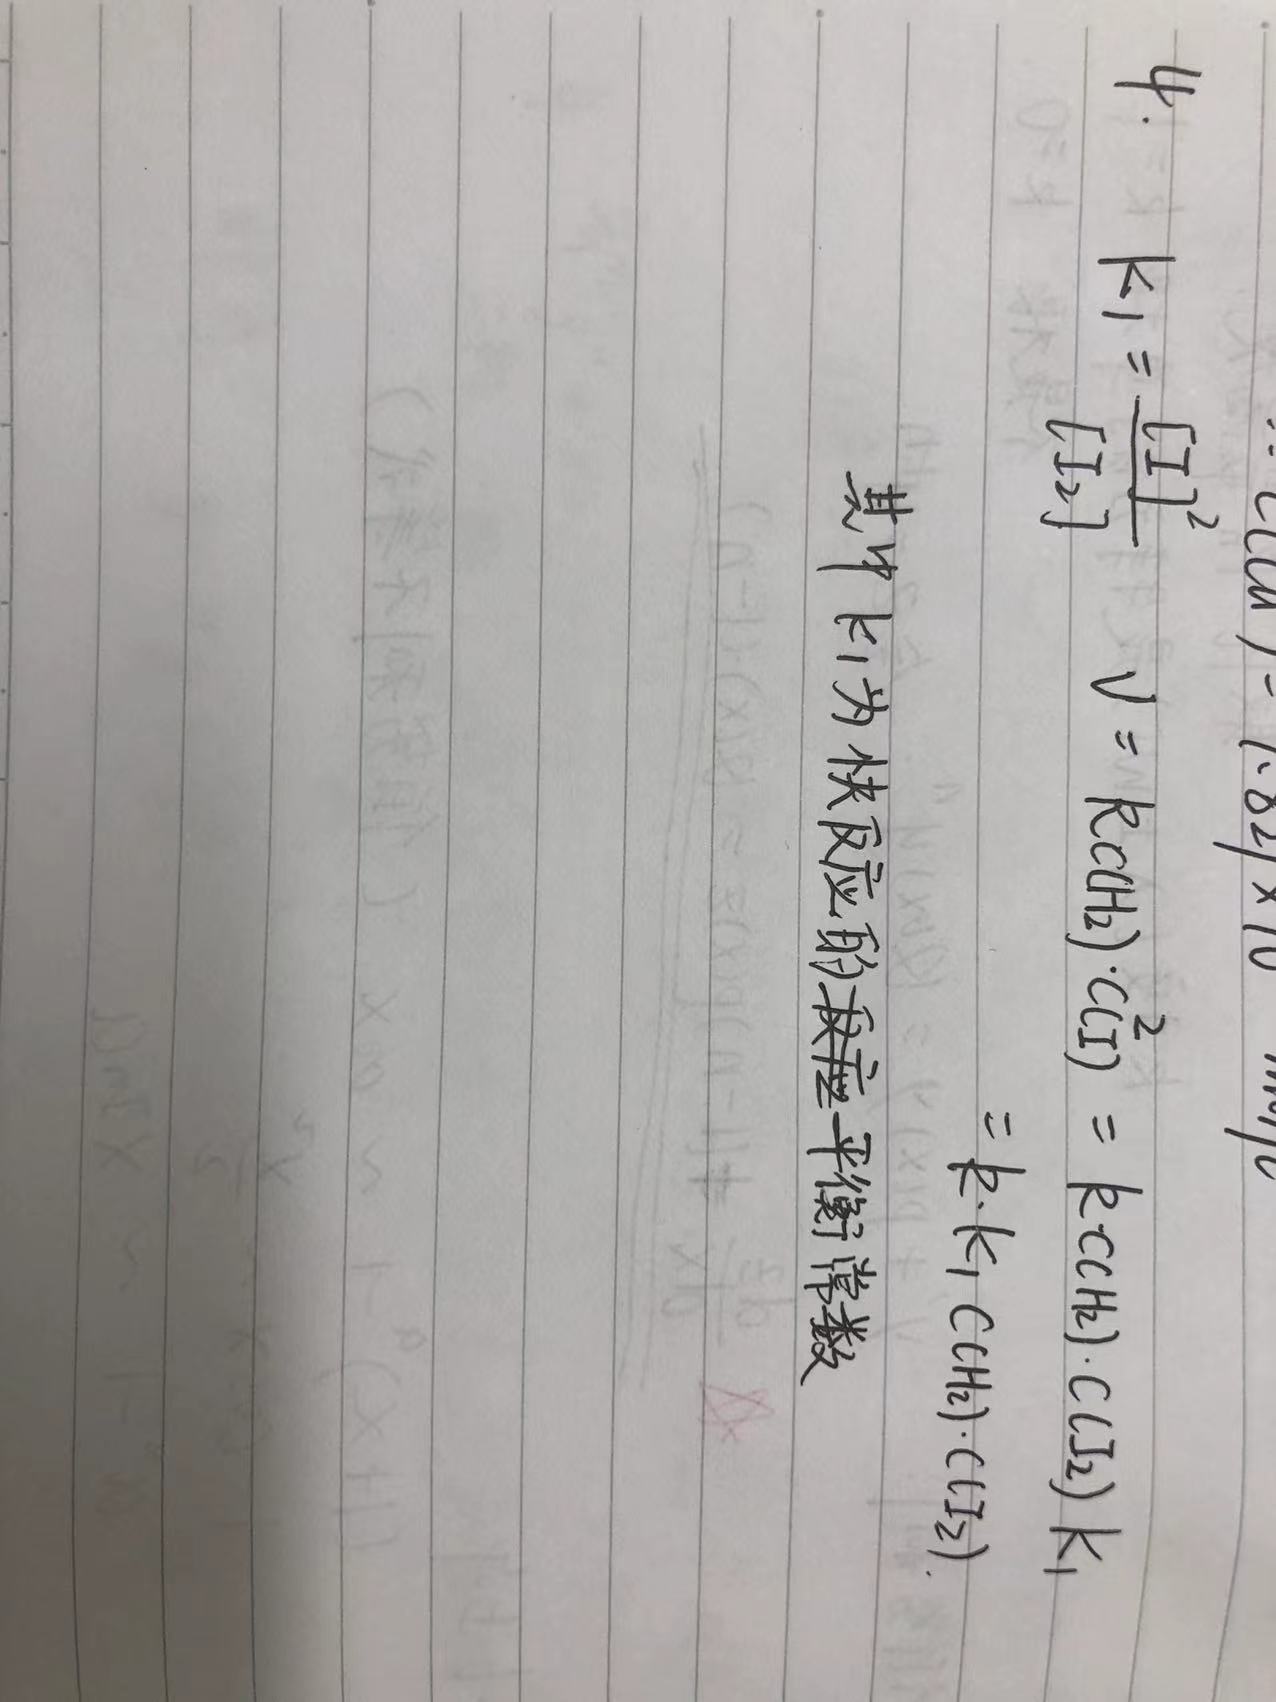 ∴ C(Cu ) = 1.82 × 10
4. K₁ = [I]² / [I₂]  V = kC(H₂)·C²(I) = k·C(H₂)·C(I₂) K₁
= k·K₁ C(H₂)·C(I₂).
其中 K₁ 为快反应的反应平衡常数